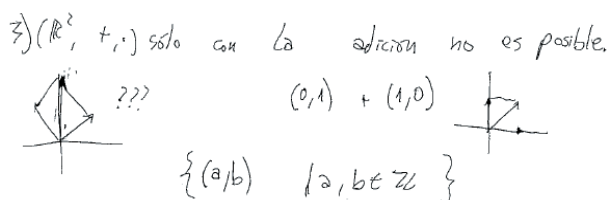 3) (ℝ², +, ·) sólo con la adicion no es posible.
??? (0,1) + (1,0)
{(a,b) / a, b ∈ ℤ}